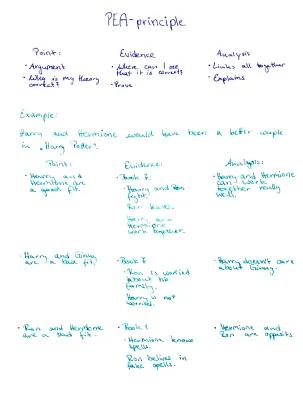 PEA-principle
Point:
• Argument
• Why is my theory correct?
Evidence
• Where can I see that it is correct?
• Prove
Analysis
• Links all together
• Explains
Example:
Harry and Hermione would have been a better couple
in „Harry Potter"?
Point:
• Harry and
Hermione are
a good fit.
Evidence:
• Book 7:
• Harry and Ron
fight.
Ron leaves.
Harry and
Hermione
work together.
Analysis:
• Harry and Hermione
can work
together really
well.
• Harry and Ginny
are a bad fit.
• Book 7
• Ron is worried
about his
family.
Harry is not
worried.
• Harry doesn't care
about Ginny.
• Ron and Hermione
are a bad fit.
• Book 1
• Hermione knows
spells.
Ron belives in
fake spells.
• Hermione and
Ron are opposits.